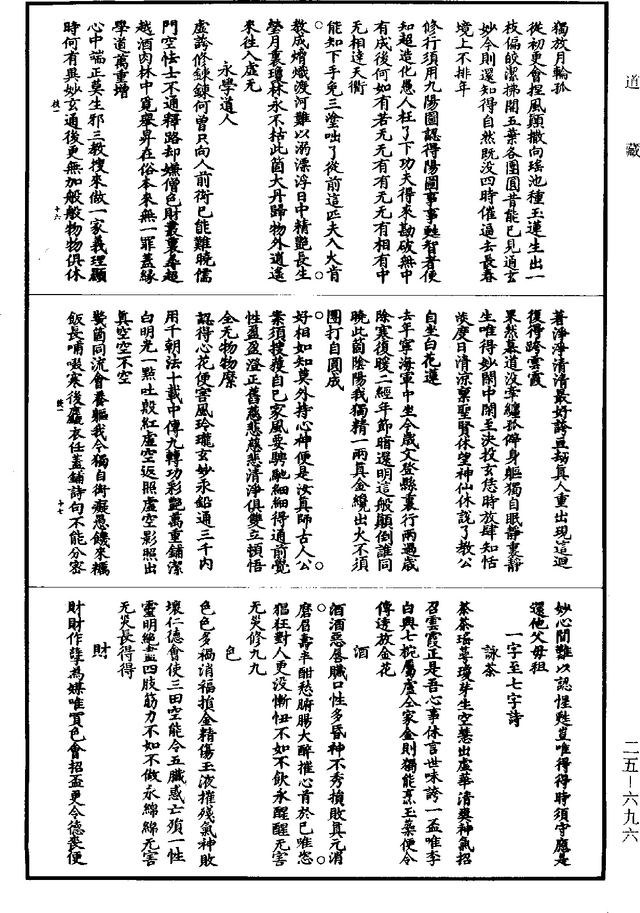 道藏
獨放月輪孤
從初更會捏風顛撒向瑤池種玉蓮生出一
枝偏皎潔拂開五葉各團圓昔能已見通玄
妙今則還知得自然既没四時催過去長春
境上不排年
修行須用九陽圖認得陽圖事事甦智者便
知超造化愚人枉了下功夫得來勘破無中
有成後何如有若无无有有无无有相有中
无相達天衢
能知下手免三塗咄了從前這匹夫入火肯
教成㷔熾渡河難以溺漂浮日中精艷長生
瑩月裏瓊林永不枯此箇大丹歸物外逍遙
來往入虛无
永學道人
虛誇修鍊鍊何曾只向人前衒已能難曉儒
門空怯士不通釋路却嫌僧色財叢裏尋超
越酒肉林中覓舉昇在俗本來無一罪蓋緣
學道萬重增
心中端正莫生邪三教搜來做一家義理顯
時何有異妙玄通後更無加般般物物俱休
十六
著淨淨清清最好誇亘劫真人重出現這迴
復得跨雲霞
果然慕道没牽纏孤僻身軀獨自眠靜裏靜
生唯得妙閑中閑至決投玄恁時放肆知恬
淡度日清涼稟聖賢休望神仙休說了教公
自坐白花蓮
去年寧海軍中坐今歲文登縣裏行兩過歲
除寒復暖二經年節暗還明這般顛倒誰同
曉此箇陰陽我獨精一兩真金纔出火不須
團打自圓成
好相如知莫外持心神便是汝真師古人公
案須搜獲自已家風要騁馳細細得通前覺
性盈盈澄正舊慈悲慈悲清淨俱雙立頓悟
全无物物糜
認得心花便害風玲瓏玄妙永鉛通三千內
用千朝法十載中傳九轉功彩艷萬重鋪潔
白明光一點吐殷紅虛空返照虛空影照出
真空空不空
鬢髽同流會養軀我今獨自衒癡愚饑來糲
飯長哺啜寒後麤衣任蓋鋪詩句不能分密
十七
妙心閒難以認惺甦豈唯得得時須守應是
還他父母祖
一字至七字詩
詠茶
茶茶瑤萼瓊芽生空慧出虛華清爽神氣招
召雲霞正是吾心事休言世味誇一盃唯李
白興七椀屬盧仝家金則獨能烹玉蘂便令
傳透放金花
酒
酒酒惡脣贓口性多昏神不秀損敗真元消
磨眉壽半酣愁腑腸大醉摧心首於已唯恣
猖狂對人更没慚忸不如不飲永醒醒无害
无災修九九
色
色色多禍消福損金精傷玉液摧殘氣神敗
壞仁德會使三田空能令五臟惑亡殞一性
靈明絕盡四肢筋力不如不做永綿綿无害
无災長得得
財
財財作孽為媒唯買色會招盃更令德喪便
二五—六九六